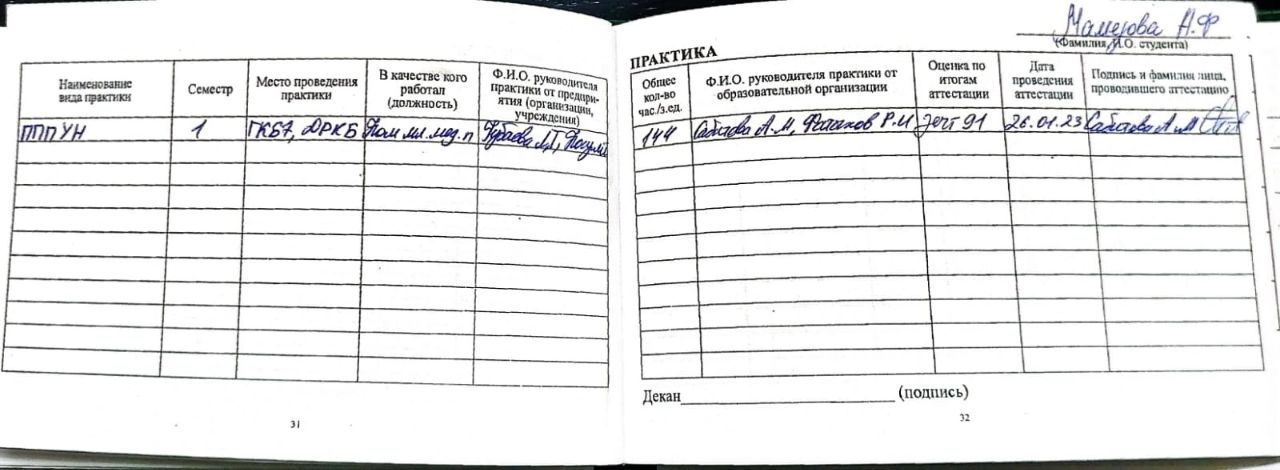 Наименование
вида практики
Семестр
Место проведения
практики
В качестве кого
работал
(должность)
Ф.И.О. руководителя
практики от предпри-
ятия (организации,
учреждения)
ПППУН
1
ГКБ7, ДРКБ
Пом мл. мед. п
31
Мамедова А.Ф
(Фамилия, И.О. студента)
ПРАКТИКА
Общее
кол-во
час./з.ед.
Ф.И.О. руководителя практики от
образовательной организации
Оценка по
итогам
аттестации
Дата
проведения
аттестации
Подпись и фамилия лица,
проводившего аттестацию
144
А.М, Р.И
зачт 91
26.01.23
А.М
Декан (подпись)
32